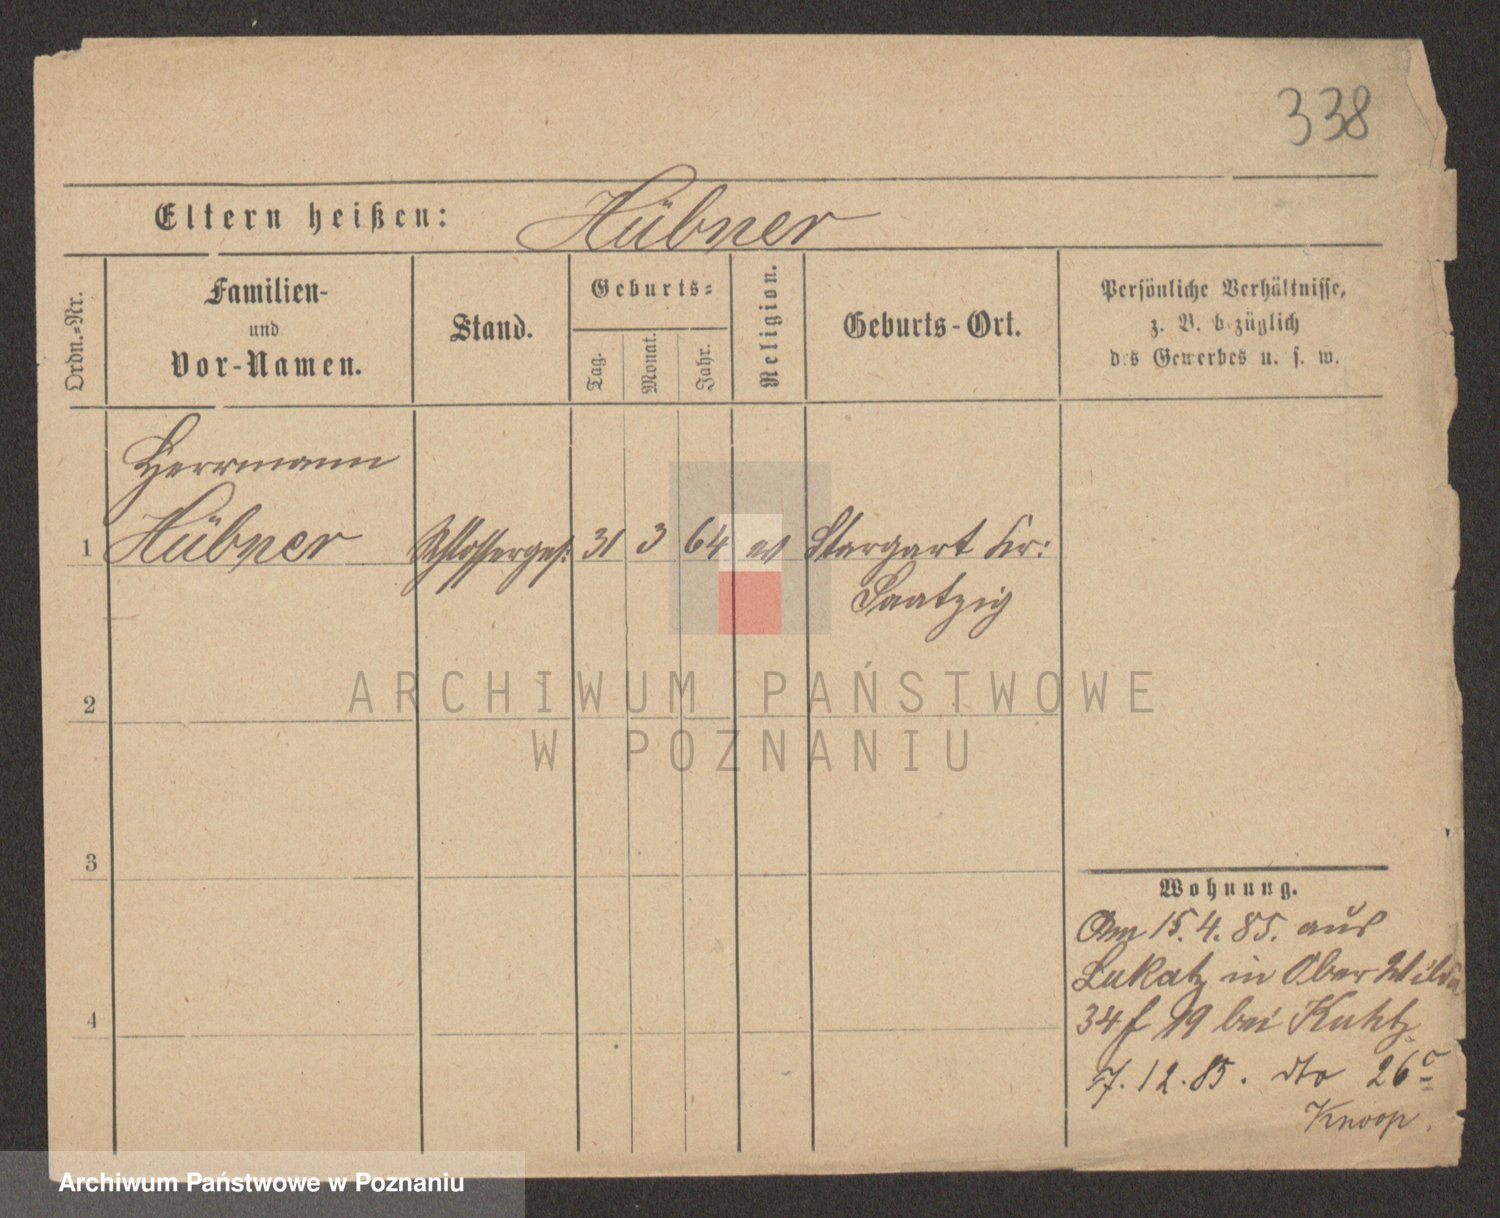 338
Eltern heißen: Hübner
Ordn.-Nr.
Familien-
und
Vor-Namen.
Stand.
Geburts-
Tag.
Monat.
Jahr.
Religion.
Geburts-Ort.
Persönliche Verhältnisse,
z. B. bezüglich
des Gewerbes u. s. w.
Herrmann
1 Hübner Schlosserges: 31 3 64 ev Stargart Kr:
Saatzig
2
3
4
Wohnung.
Am 15.4.85. aus
Lukatz in Ober Wilda
34 f 19 bei Kuhtz
7.12.85. dto 26c
Knoop.
ARCHIWUM PAŃSTWOWE
W POZNANIU
Archiwum Państwowe w Poznaniu